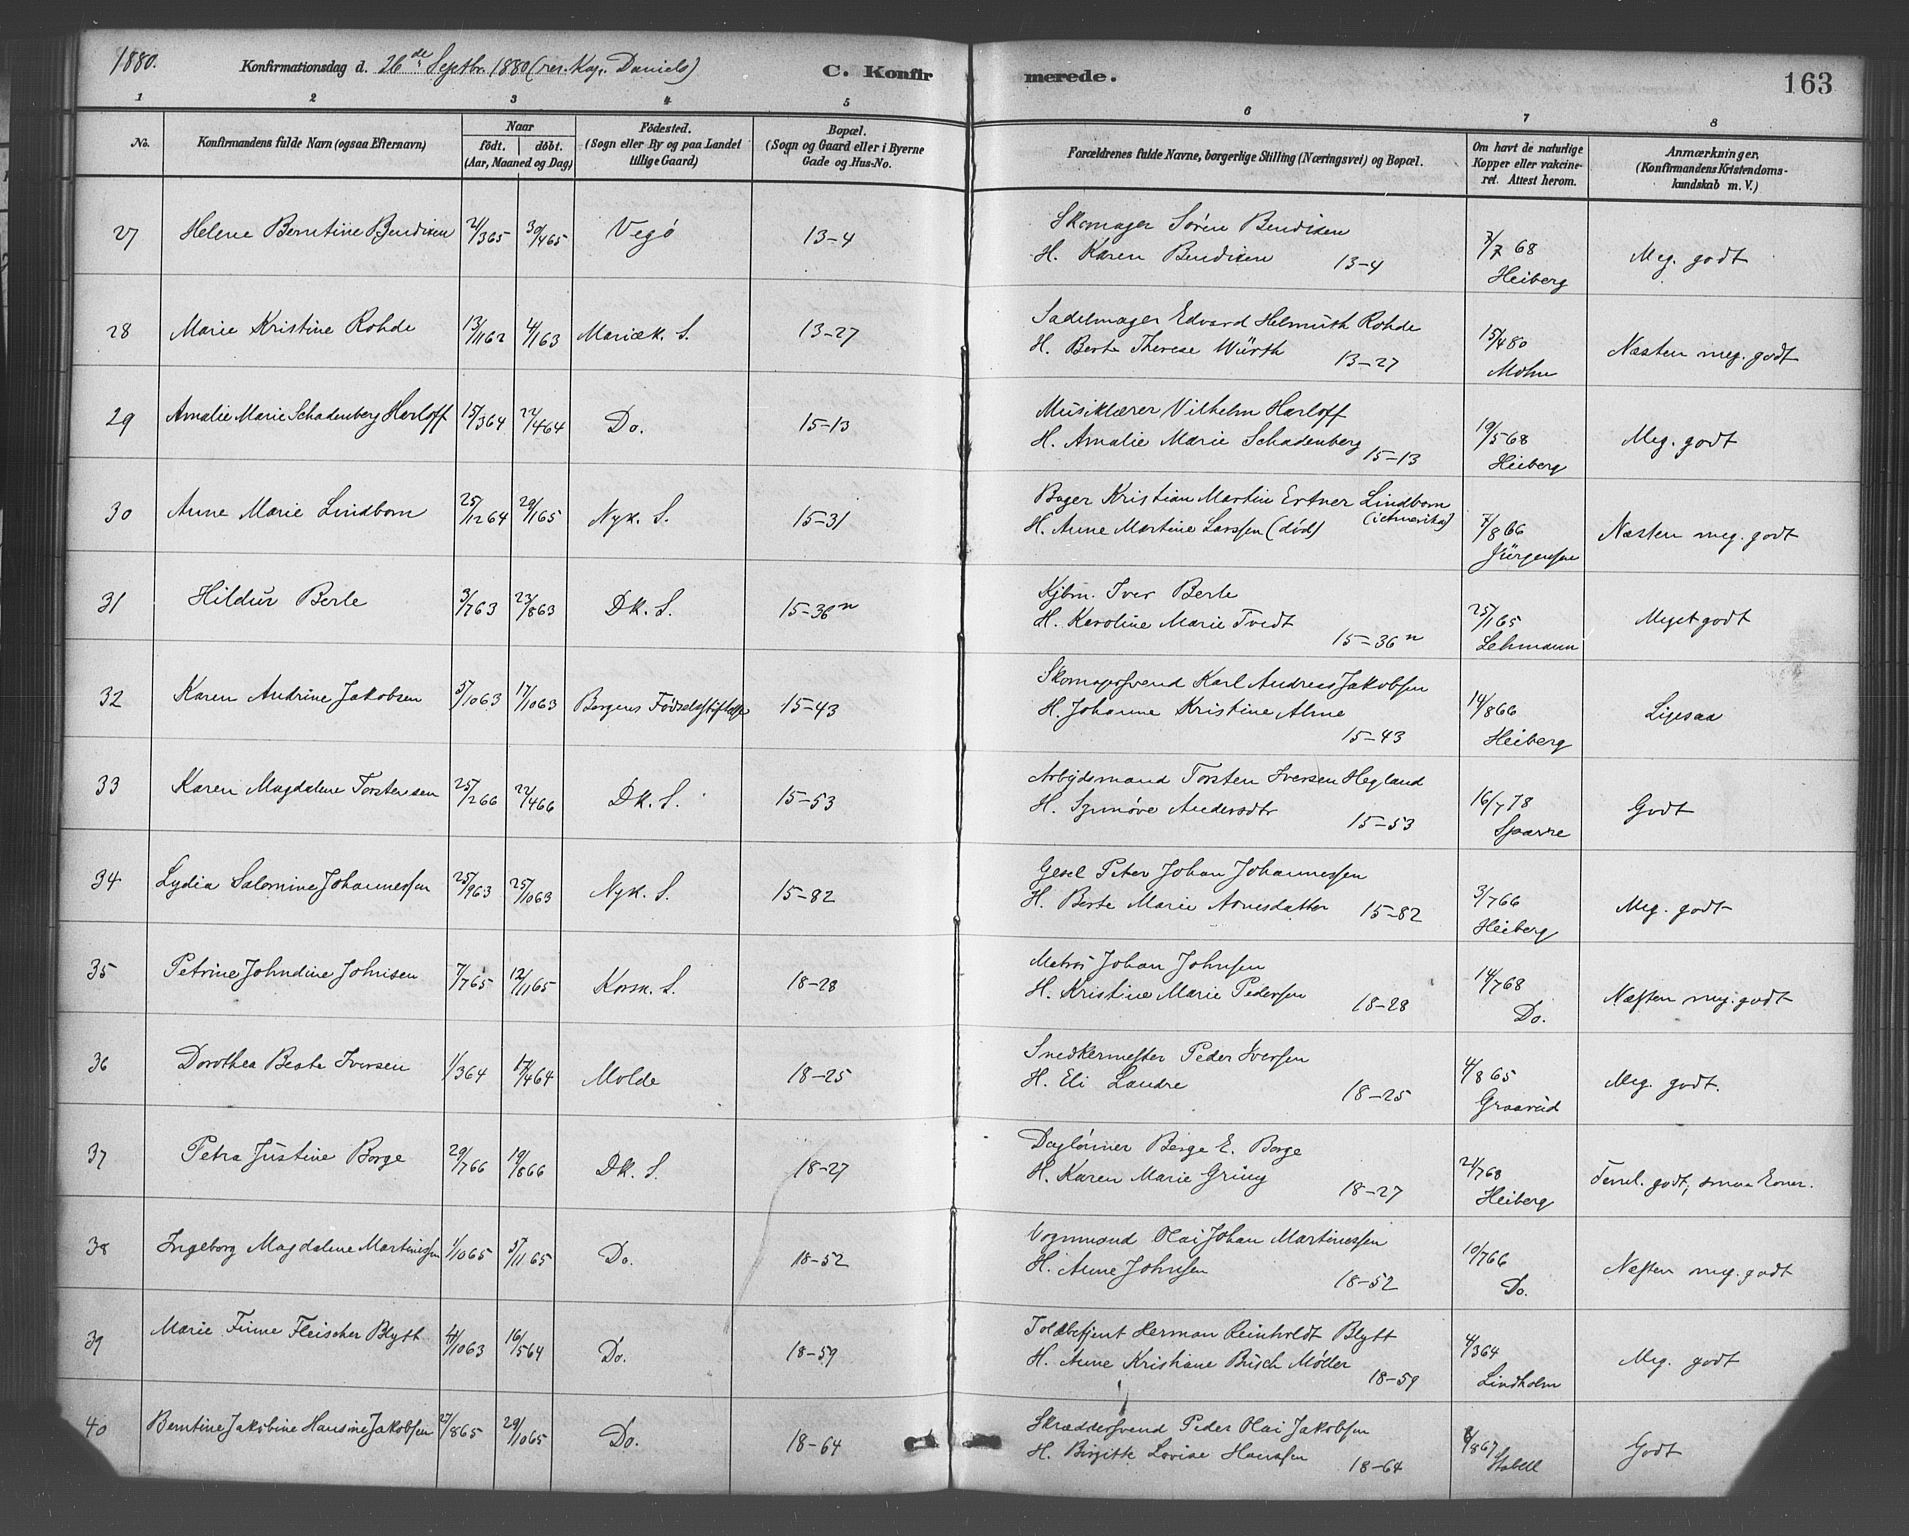 1880. Konfirmationsdag d. 26de Septbr. 1880 (res. Kap. Daniels) C. Konfirmerede. 163
1 2 3 4 5 6 7 8
No. Konfirmandens fulde Navn (ogsaa Efternavn) Naar født. døbt. (Aar, Maaned og Dag) Fødested. (Sogn eller By og paa Landet tillige Gaard) Bopæl. (Sogn og Gaard eller i Byerne Gade og Hus-No. Forældrenes fulde Navne, borgerlige Stilling (Næringsvei) og Bopæl. Om havt de naturlige Kopper eller vakcineret. Attest herom. Anmærkninger. (Konfirmandens Kristendomskundskab m. V.)
27 Helene Berntine Bendixen 2/365 30/465 Vegö 13-4 Skomager Sören Bendixen
H. Karen Bendixen 13-4 7/7 68 Heiberg Meg. godt
28 Marie Kristine Rohde 13/1162 4/163 Mariæk. S. 13-27 Sadelmager Edvard Helmuth Rohde
H. Berte Therese Würth 13-27 15/480 Mohn Næsten meg. godt
29 Amalie Marie Schadenberg Herloff 15/364 22/464 Do. 15-13 Musiklærer Vilhelm Harloff
H. Amalie Marie Schadenberg 15-13 19/568 Heiberg Meg. godt
30 Anne Marie Lindbom 25/1264 29/165 Nyk. S. 15-31 Bager Kristian Martin Ertner Lindbom
H. Anne Martine Larssen (död) (i Amerika) 7/866 Jürgensen Næsten meg. godt
31 Hildur Berle 3/763 23/863 Dk. S. 15-36n Kjbm. Iver Berle
H. Karoline Marie Tvedt 15-36n 25/165 Lehmann Meget godt
32 Karen Andrine Jakobsen 5/1063 17/1063 Bergens Födselsstiftelse 15-43 Skomagersvend Karl Andreas Jakobsen
H. Johanne Kristine Alme 15-43 14/866 Heiberg Ligesaa
33 Karen Magdalene Torstensen 25/266 22/466 Dk. S. 15-53 Arbejdsmand Torsten Iversen Hegland
H. Synnöve Andersdtr 15-53 16/778 Sparre Godt
34 Lydia Salomine Johannessen 25/963 25/1063 Nyk. S. 15-82 Gesel Peter Johan Johannessen
H. Berte Marie Arnesdatter 15-82 3/766 Heiberg Meg. godt
35 Petrine Johndine Johnsen 7/765 12/1165 Korsk. S. 18-28 Matros Johan Johnsen
H. Kristine Marie Pedersen 18-28 14/768 Do. Næsten meg. godt
36 Dorothea Beate Iversen 1/364 17/464 Molde 18-25 Snedkermester Peder Iversen
H. Eli Landre 18-25 4/865 Meg. godt.
37 Petra Justine Borge 29/766 19/866 Dk. S. 18-27 Daglönner Berge E. Borge
H. Karen Marie Grung 18-27 21/768 Heiberg Temel. godt,
38 Ingeborg Magdalene Martinessen 1/1065 5/1165 Do. 18-52 Vognmand Olai Johan Martinessen
H. Anne Johnsen 18-52 10/766 Do. Næsten meg. godt
39 Marie Finne Fleischer Blytt 4/1063 16/564 Do. 18-59 Toldbetjent Herman Reinholdt Blytt
H. Anne Kristiane Büsch Möller 18-59 4/364 Lindholm Meg. godt
40 Berntine Jakobine Hansine Jakobsen 27/865 29/1065 Do. 18-64 Skræddersvend Peder Olai Jakobsen
H. Birgitte Lovise Hanssen 18-64 8/867 Stabell Godt